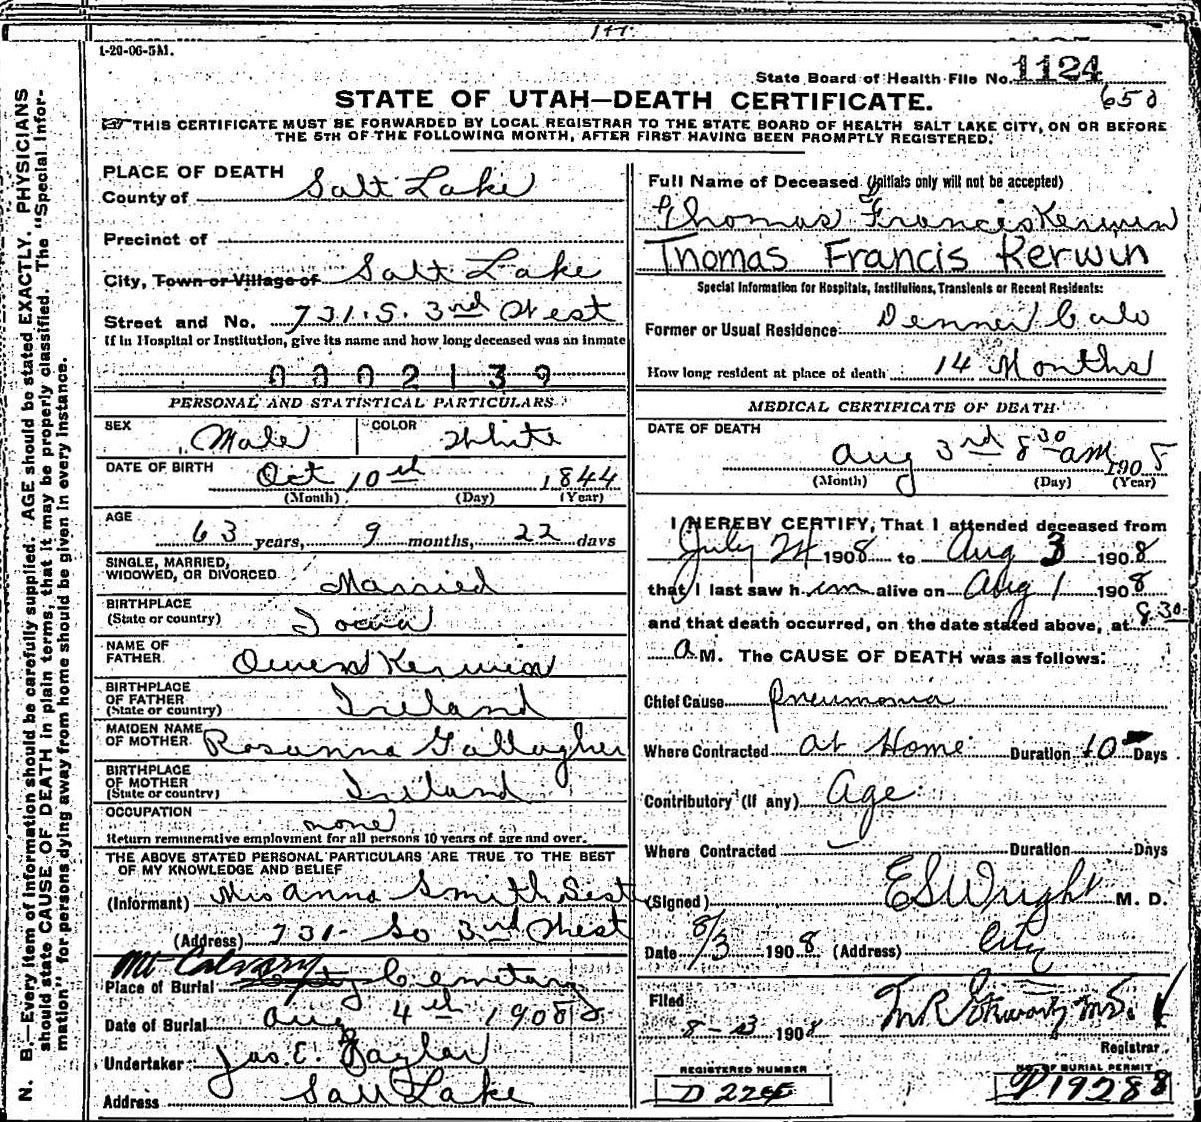 1-20-06-5M.
State Board of Health File No. 1124
650
STATE OF UTAH—DEATH CERTIFICATE.
THIS CERTIFICATE MUST BE FORWARDED BY LOCAL REGISTRAR TO THE STATE BOARD OF HEALTH SALT LAKE CITY, ON OR BEFORE
THE 5TH OF THE FOLLOWING MONTH, AFTER FIRST HAVING BEEN PROMPTLY REGISTERED.
N. B—Every item of information should be carefully supplied. AGE should be stated EXACTLY. PHYSICIANS
should state CAUSE OF DEATH in plain terms, that it may be properly classified. The "Special Infor-
mation" for persons dying away from home should be given in every instance.
PLACE OF DEATH
County of Salt Lake
Precinct of
City, Town or Village of Salt Lake
Street and No. 731. S. 3rd West
If in Hospital or Institution, give its name and how long deceased was an inmate
0002139
PERSONAL AND STATISTICAL PARTICULARS
SEX Male COLOR White
DATE OF BIRTH Oct 10th 1844
(Month) (Day) (Year)
AGE
63 years, 9 months, 22 days
SINGLE, MARRIED,
WIDOWED, OR DIVORCED Married
BIRTHPLACE
(State or country) Iowa
NAME OF
FATHER Owen Kerwin
BIRTHPLACE
OF FATHER
(State or country) Ireland
MAIDEN NAME
OF MOTHER Rosanna Gallagher
BIRTHPLACE
OF MOTHER
(State or country) Ireland
OCCUPATION none
Return remunerative employment for all persons 10 years of age and over.
THE ABOVE STATED PERSONAL PARTICULARS ARE TRUE TO THE BEST
OF MY KNOWLEDGE AND BELIEF
(Informant) Mrs Anna Smith Sest
(Address) 731- So 3rd West
Mt Calvary
Place of Burial City Cemetary
Date of Burial Aug 4th 1908
Undertaker Jas. E. Taylor
Address Salt Lake
Full Name of Deceased (Initials only will not be accepted)
Thomas Francis Kerwin
Thomas Francis Kerwin
Special Information for Hospitals, Institutions, Transients or Recent Residents:
Former or Usual Residence Denver Colo
How long resident at place of death 14 Months
MEDICAL CERTIFICATE OF DEATH
DATE OF DEATH
Aug 3rd 8 30 am 1908
(Month) (Day) (Year)
I HEREBY CERTIFY, That I attended deceased from
July 24 1908 to Aug 3 1908
that I last saw him alive on Aug 1 1908
and that death occurred, on the date stated above, at 8 30
a M. The CAUSE OF DEATH was as follows:
Chief Cause pneumonia
Where Contracted at Home Duration 10 Days
Contributory (If any) Age
Where Contracted Duration Days
(Signed) ES Wright M. D.
Date 8/3 1908 (Address) City
Filed
8-3 1908
Registrar
REGISTERED NUMBER
NO. OF BURIAL PERMIT
D19288